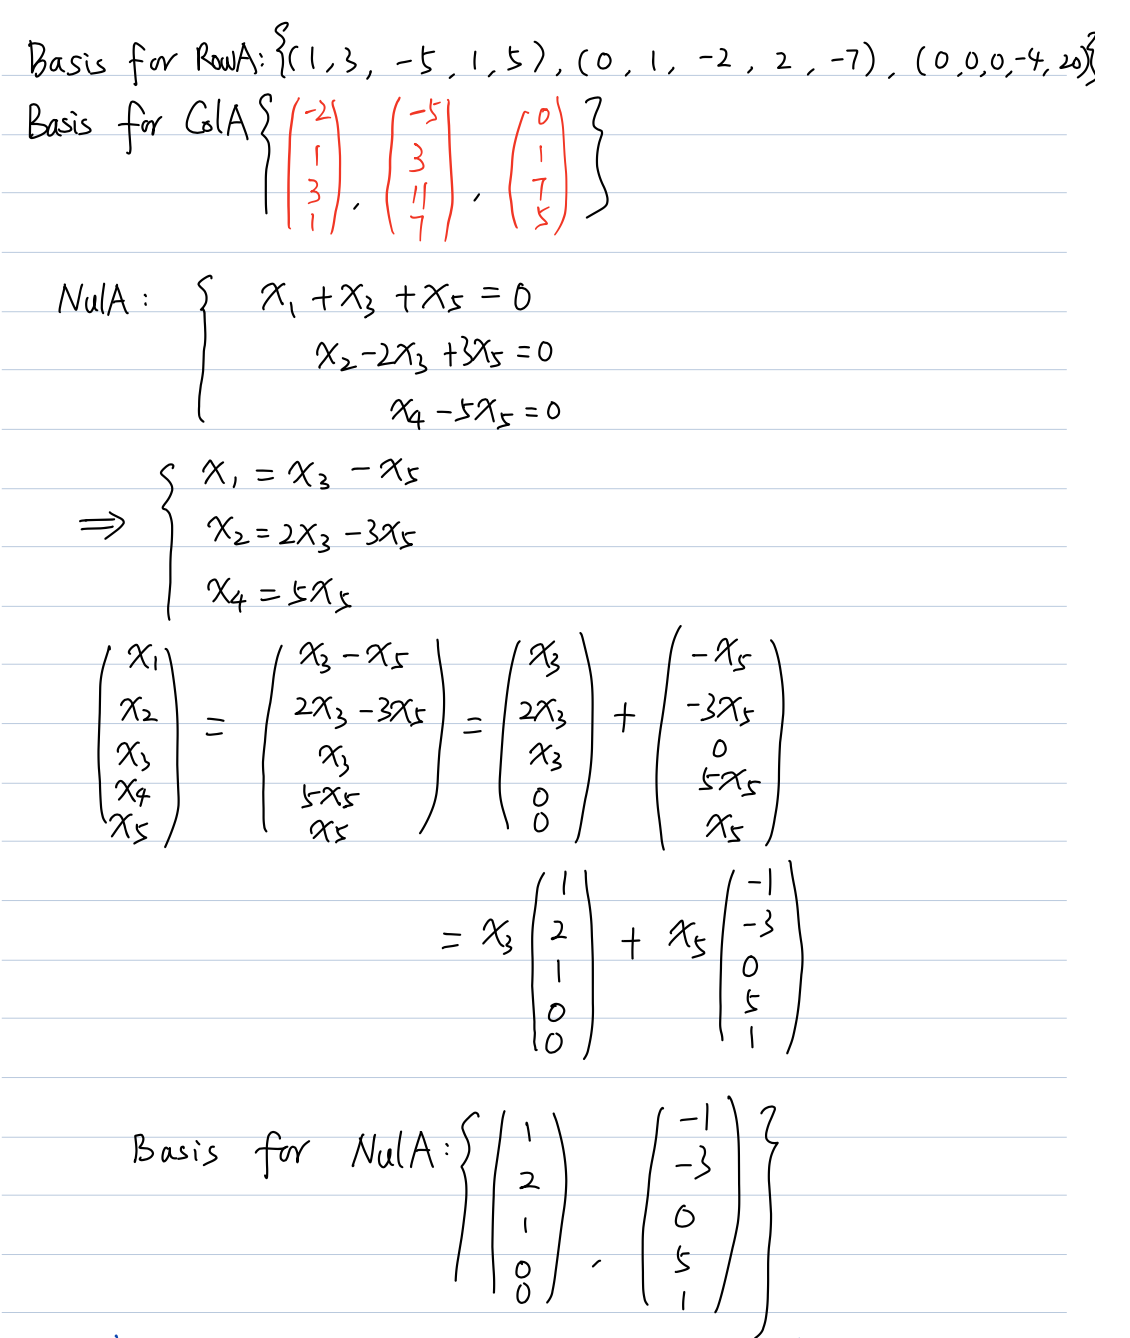 Basis for RowA: {(1, 3, -5, 1, 5), (0, 1, -2, 2, -7), (0,0,0,-4,20)}
Basis for ColA { (-2 1 3 1), (-5 3 11 7), (0 1 7 5) }
NulA: { x₁ + x₃ + x₅ = 0
x₂ - 2x₃ + 3x₅ = 0
x₄ - 5x₅ = 0
⇒ { x₁ = x₃ - x₅
x₂ = 2x₃ - 3x₅
x₄ = 5x₅
(x₁ x₂ x₃ x₄ x₅) = (x₃ - x₅ 2x₃ - 3x₅ x₃ 5x₅ x₅) = (x₃ 2x₃ x₃ 0 0) + (-x₅ -3x₅ 0 5x₅ x₅)
= x₃ (1 2 1 0 0) + x₅ (-1 -3 0 5 1)
Basis for NulA: { (1 2 1 0 0), (-1 -3 0 5 1) }